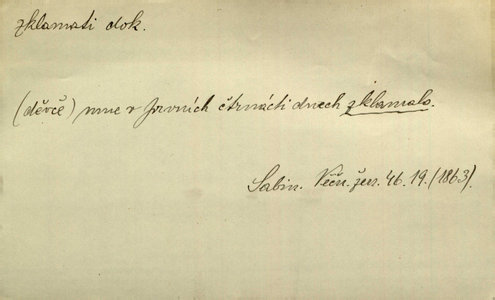 zklamati dok.
(děvče) mne v prvních čtrnácti dnech zklamalo.
Sabin. Věčn. žen. 46. 19. (1863).